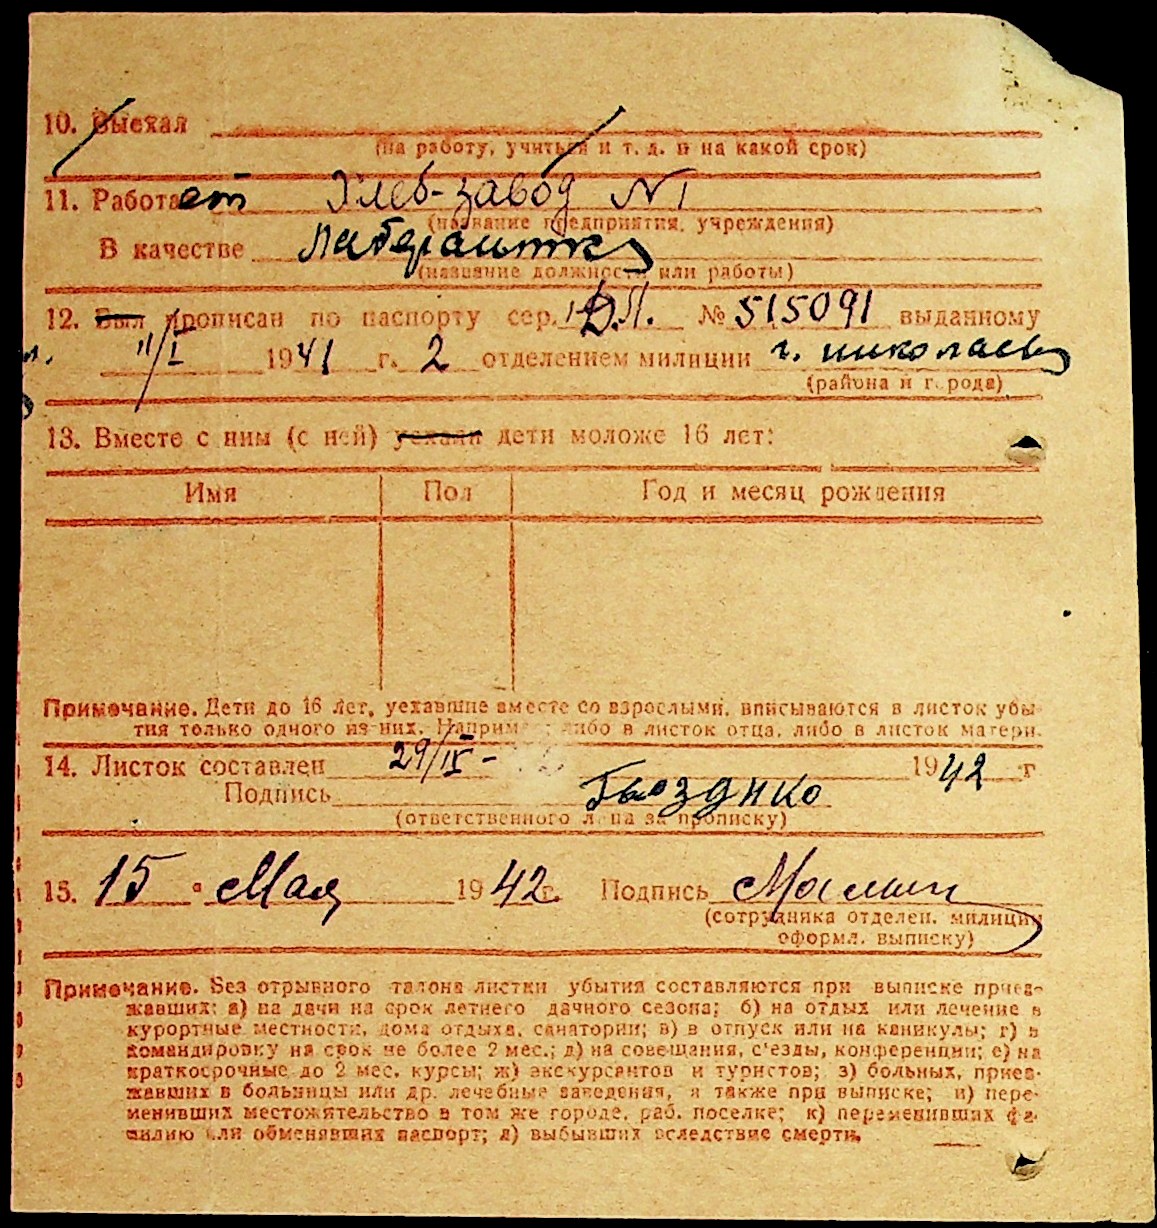 10. Выехал
(на работу, учиться и т. д. и на какой срок)
11. Работает Хлеб-завод №1
(название предприятия, учреждения)
В качестве лаберантка
(название должности или работы)
12. Был прописан по паспорту сер. № 515091 выданному
11/I 1941 г. 2 отделением милиции г. николаев
(района и города)
13. Вместе с ним (с ней) уехали дети моложе 16 лет:
Имя Пол Год и месяц рождения
Примечание. Дети до 16 лет, уехавшие вместе со взрослыми, вписываются в листок убы-
тия только одного из них. Например: либо в листок отца, либо в листок матери.
14. Листок составлен 29/IV- 1942 г
Подпись Гвоздико
(ответственного лица за прописку)
15. 15 " Мая 1942 г. Подпись
(сотрудника отделен. милиции
оформл. выписку)
Примечание. Без отрывного талона листки убытия составляются при выписке приез-
жавших: а) на дачи на срок летнего дачного сезона; б) на отдых или лечение в
курортные местности, дома отдыха, санатории; в) в отпуск или на каникулы; г) в
командировку на срок не более 2 мес.; д) на совещания, с'езды, конференции; е) на
краткосрочные до 2 мес. курсы; ж) экскурсантов и туристов; з) больных, приез-
жавших в больницы или др. лечебные заведения, а также при выписке; и) пере-
менивших местожительство в том же городе, раб. поселке; к) переменивших фа-
милию или обменявших паспорт; л) выбывших вследствие смерти.